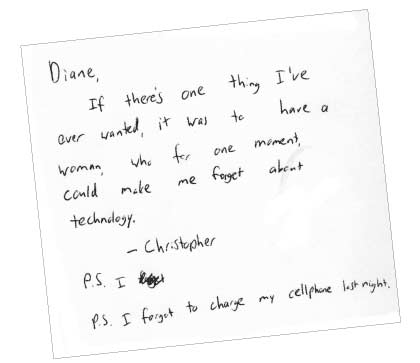 Diane,
If there's one thing I've
ever wanted, it was to have a
woman, who for one moment,
could make me forget about
technology.
- Christopher
P.S. I
P.S. I forgot to charge my cellphone last night.